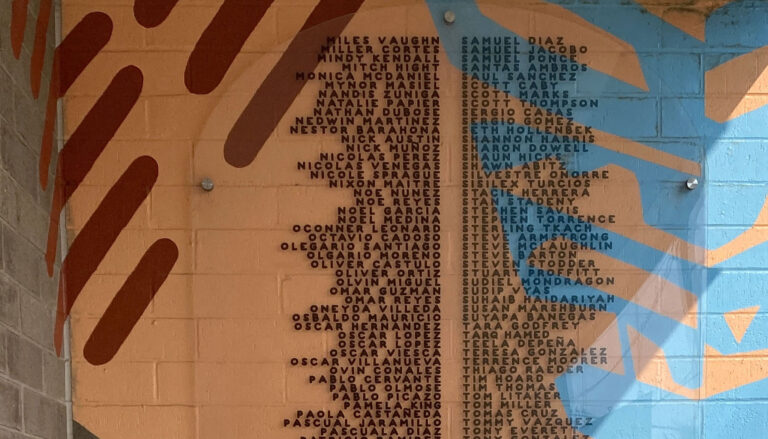 MILES VAUGHN
MILLER CORTES
MINDY KENDALL
MITCH HIGHT
MONICA MCDANIEL
MYNOR MASIEL
NANDIS ZUNIGA
NATALIE PAPIER
NATHAN DUBOSE
NEDWIN MARTINEZ
NESTOR BARAHONA
NICK AUSTIN
NICK MUÑOZ
NICOLAS PEREZ
NICOLAS VENEGAS
NICOLE SPRAGUE
NIXON MAITRE
NOE NUNEZ
NOE REYES
NOEL GARCIA
NOEL MEDINA
OCONNER LEONARD
OCTAVIO CADOSO
OLEGARIO SANTIAGO
OLGARIO MORENO
OLIVER CASTULO
OLIVER ORTIZ
OLVIN MIGUEL
OMAR GUZMAN
OMAR REYES
ONEYDA VILLEDA
OSBALDO MAURICIO
OSCAR HERNANDEZ
OSCAR LOPEZ
OSCAR LOPEZ
OSCAR VIESCA
OSCAR VILLANUEVA
OVIN CONALES
PABLO CERVANTE
PABLO OLMOSE
PABLO PICAZO
PAMELA KING
PAOLA CASTAÑEDA
PASCUAL JARAMILLO
PASCUALA DIAZ
PATRICIO RAMIREZ
SAMUEL DIAZ
SAMUEL JACOBO
SAMUEL PONCE
SANTAS AMBROS
SAUL SANCHEZ
SCOTT CABY
SCOTT MARKS
SCOTT THOMPSON
SERGIO CASAS
SERGIO GOMEZ
SETH HOLLENBEK
SHANNON HARRIS
SHARON DOWELL
SHAUN HICKS
SHAWN ABITZ
ONORRE
SISILEX TURCIOS
STACIE HERRERA
STAN STRICNY
STEPHEN SAVIS
STEPHEN TORRENCE
STERLING TKACH
STEVE ARMSTRONG
STEVE MCLAUGHLIN
STEVEN ARTON
STEVEN STODDER
STUART PROFFITT
SUDIEL MONDRAGON
SUDIP VYAS
SUHAIB ALDARIYAH
SUSAN MARSHBURN
SUYAPA BANEGAS
TARA GODFREY
TARQ HAMED
TEELA DEPEÑA
TERESA GONZALEZ
TERRENCE MOORER
THIAGO RAEDER
TIM HOARD
TIM THOMAS
TOM LITAKER
TOM MILLER
TOMAS CRUZ
TOMMY VAZQUEZ
TONY EVERETT
TONY